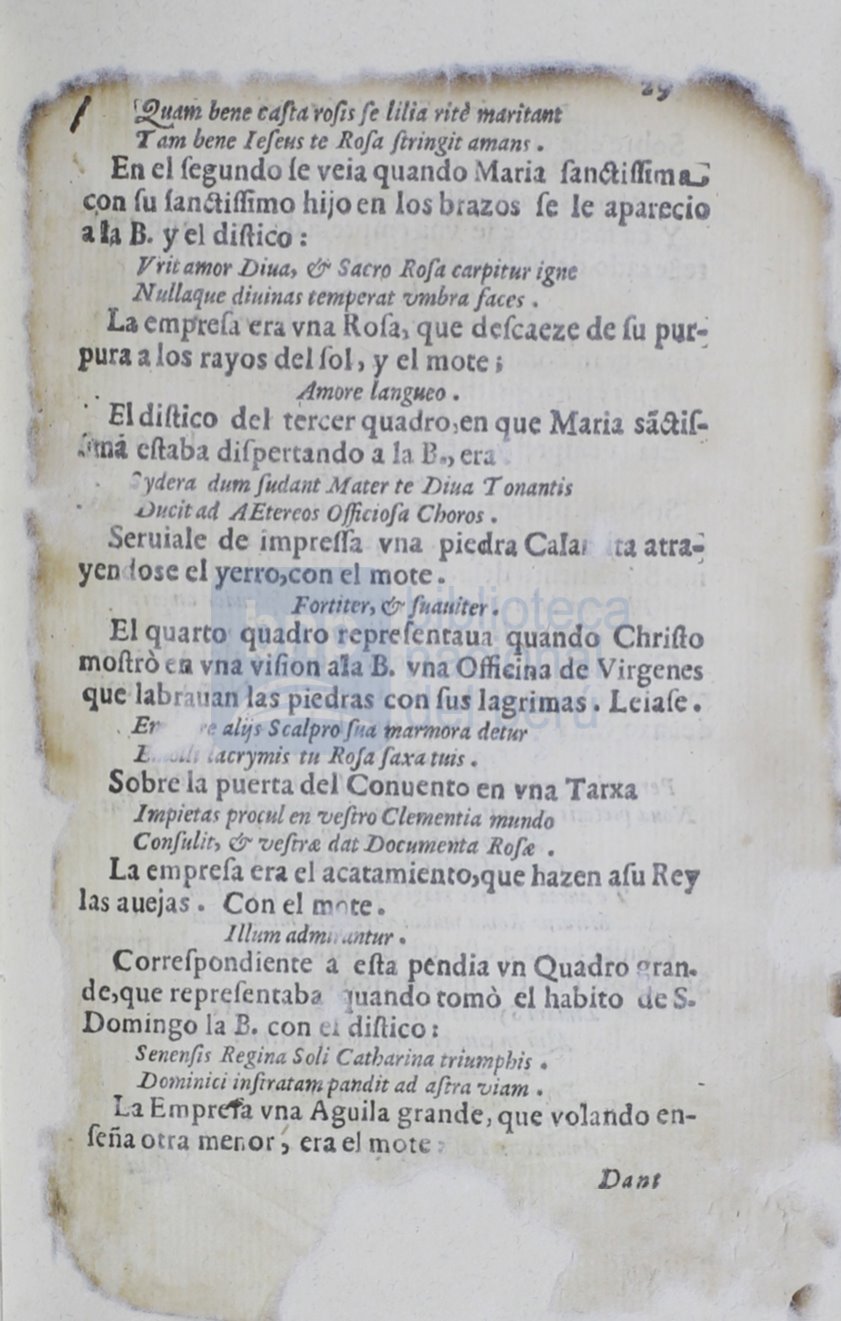 29
Quam bene casta rosis se lilia ritè maritant
Tam bene Ieseus te Rosa stringit amans.
En el segundo se veia quando Maria sanctissima
con su sanctissimo hijo en los brazos se le aparecio
a la B. y el distico:
Vrit amor Diua, & Sacro Rosa carpitur igne
Nullaque diuinas temperat vmbra faces.
La empresa era vna Rosa, que descaeze de su pur-
pura a los rayos del sol, y el mote;
Amore langueo.
El distico del tercer quadro, en que Maria sãctis-
simá estaba dispertando a la B., era
ydera dum sudant Mater te Diua Tonantis
Ducit ad AEtereos Officiosa Choros.
Seruiale de impressa vna piedra Cala ta atra-
yendose el yerro, con el mote.
Fortiter, & suauiter.
El quarto quadro representaua quando Christo
mostrò en vna vision ala B. vna Officina de Virgenes
que labrauan las piedras con sus lagrimas. Leiase.
Er e alijs Scalpro sua marmora detur
lacrymis tu Rosa saxa tuis.
Sobre la puerta del Conuento en vna Tarxa
Impietas procul en vestro Clementia mundo
Consulit, & vestræ dat Documenta Rosæ.
La empresa era el acatamiento, que hazen asu Rey
las auejas. Con el mote.
Illum admirantur.
Correspondiente a esta pendia vn Quadro gran-
de, que representaba quando tomò el habito de S.
Domingo la B. con el distico:
Senensis Regina Soli Catharina triumphis.
Dominici instratam pandit ad astra viam.
La Empresa vna Aguila grande, que volando en-
seña otra menor, era el mote:
Dant
biblioteca
del perú